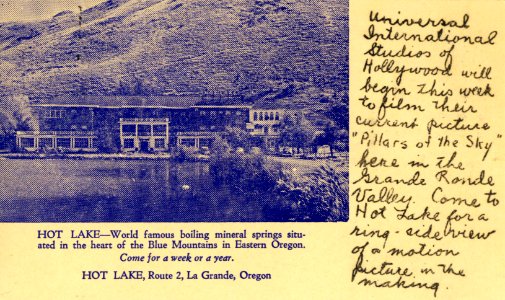 HOT LAKE—World famous boiling mineral springs situ-
ated in the heart of the Blue Mountains in Eastern Oregon.
Come for a week or a year.
HOT LAKE, Route 2, La Grande, Oregon
Universal
International
Studios of
Hollywood will
begin this week
to film their
current picture
"Pillars of the Sky"
here in the
Grande Ronde
Valley. Come to
Hot Lake for a
ring-side view
of a motion
picture in the
making.